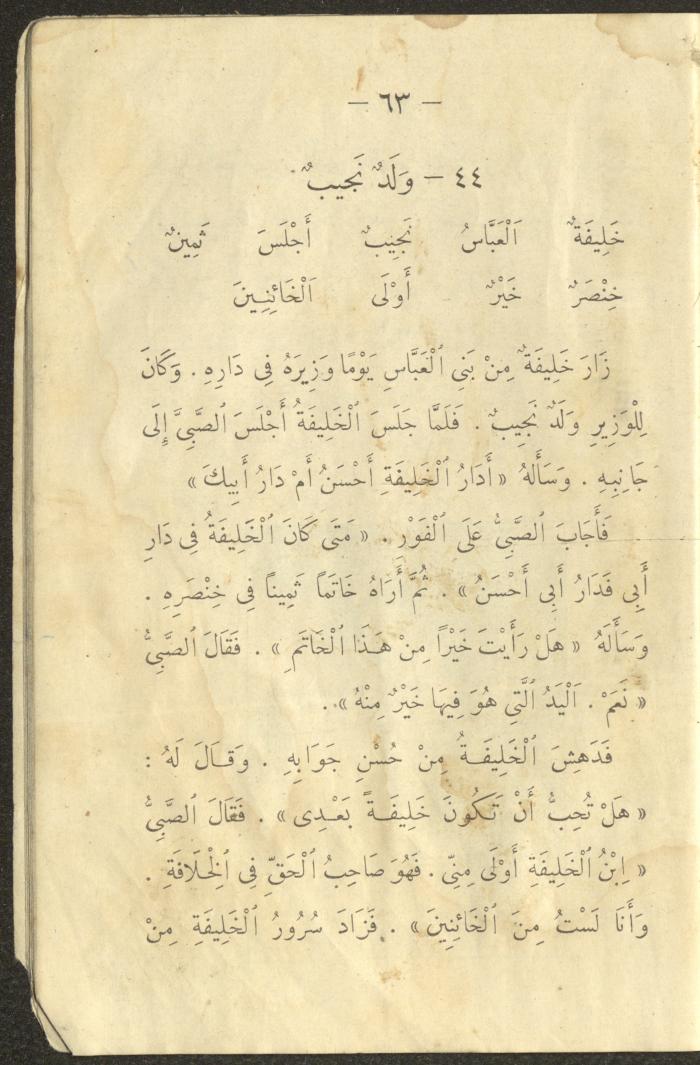 — ٦٣ —
٤٤ — وَلَدٌ نَجِيبٌ
خَلِيفَةٌ اَلْعَبَّاسُ نَجِيبٌ أَجْلَسَ ثَمِينٌ
خِنْصَرٌ خَيْرٌ أَوْلَى اَلْخَائِنِينَ
زَارَ خَلِيفَةٌ مِنْ بَنِي ٱلْعَبَّاسِ يَوْمًا وَزِيرَهُ فِي دَارِهِ . وَكَانَ
لِلْوَزِيرِ وَلَدٌ نَجِيبٌ . فَلَمَّا جَلَسَ ٱلْخَلِيفَةُ أَجْلَسَ ٱلصَّبِيَّ إِلَى
جَانِبِهِ . وَسَأَلَهُ « أَدَارُ ٱلْخَلِيفَةِ أَحْسَنُ أَمْ دَارُ أَبِيكَ »
فَأَجَابَ ٱلصَّبِيُّ عَلَى ٱلْفَوْرِ . « مَتَى كَانَ ٱلْخَلِيفَةُ فِي دَارِ
أَبِي فَدَارُ أَبِي أَحْسَنُ » . ثُمَّ أَرَاهُ خَاتَماً ثَمِيناً فِي خِنْصَرِهِ .
وَسَأَلَهُ « هَلْ رَأَيْتَ خَيْرًا مِنْ هَذَا ٱلْخَاتَمِ » . فَقَالَ ٱلصَّبِيُّ
« نَعَمْ . اَلْيَدُ ٱلَّتِي هُوَ فِيهَا خَيْرٌ مِنْهُ » .
فَدَهِشَ ٱلْخَلِيفَةُ مِنْ حُسْنِ جَوَابِهِ . وَقَالَ لَهُ :
« هَلْ تُحِبُّ أَنْ تَكُونَ خَلِيفَةً بَعْدِى » . فَقَالَ ٱلصَّبِيُّ
« اِبْنُ ٱلْخَلِيفَةِ أَوْلَى مِنِّي . فَهُوَ صَاحِبُ ٱلْحَقِّ فِي ٱلْخِلَافَةِ .
وَأَنَا لَسْتُ مِنَ ٱلْخَائِنِينَ » . فَزَادَ سُرُورُ ٱلْخَلِيفَةِ مِنْ